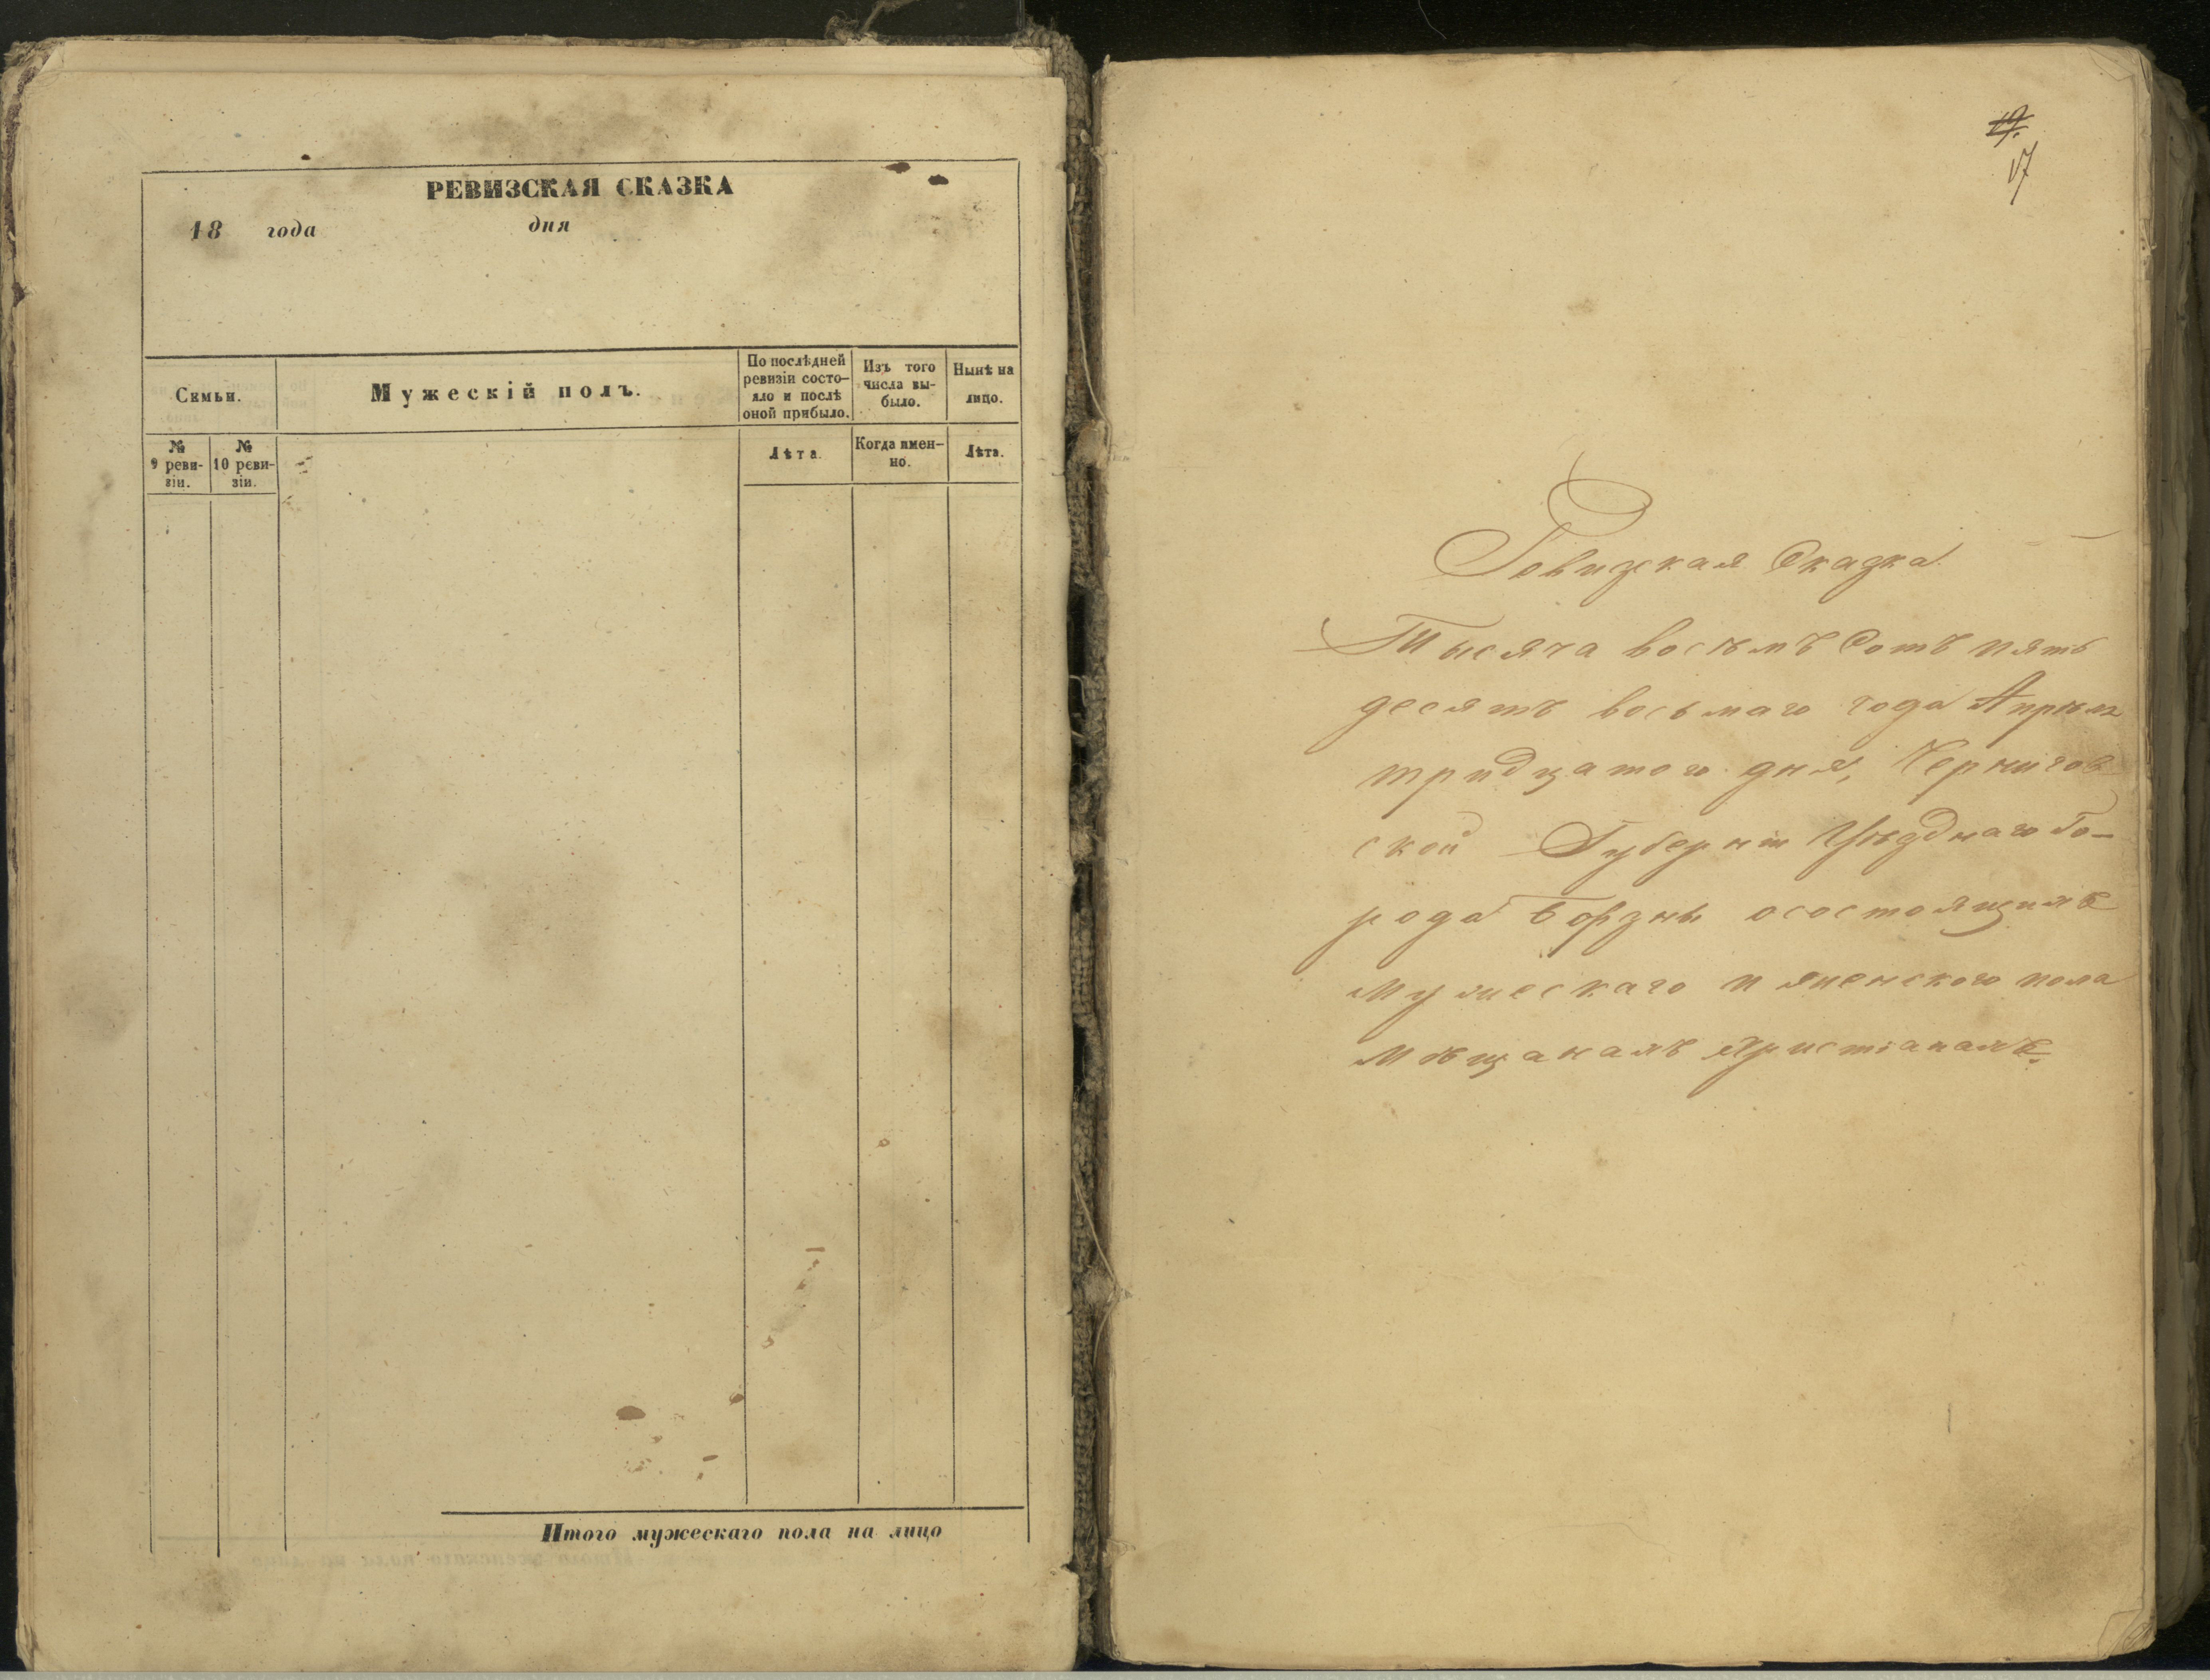 РЕВИЗСКАЯ СКАЗКА
18 года дня
Семьи.
Мужескій полъ.
По послѣдней
ревизіи состо-
яло и послѣ
оной прибыло.
Изъ того
числа вы-
было.
Нынѣ на
лицо.
№
9 реви-
зіи.
№
10 реви-
зіи.
Лѣта.
Когда имен-
но.
Лѣта.
Итого мужескаго пола на лицо
19.
17
Ревизская Сказка
Тысяча восѣмъ Сотъ пять
десятъ восьмаго года Апрѣля
тридцатого дня, Чернигов
ской Губерніи Уѣзднаго Го-
рода Борзны осостоящихъ
мужескаго и женского пола
мѣщанахъ христіанахъ.